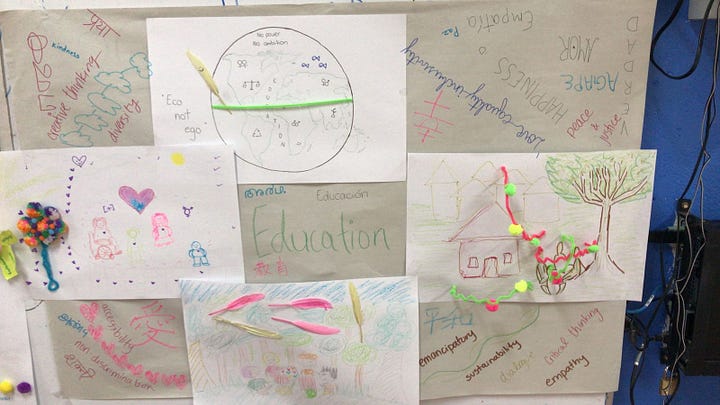 kindness
creative thinking
diversity
No power
No ambition
"Eco
not
ego"
Empatía
Paz
AMOR
VERDAD
AGAPE
HAPPINESS
Love equality inclusivity
peace
&
justice
Educación
Education
教育
accessibility
愛
non discrimination
emancipatory
sustainability
dialogue
critical thinking
empathy